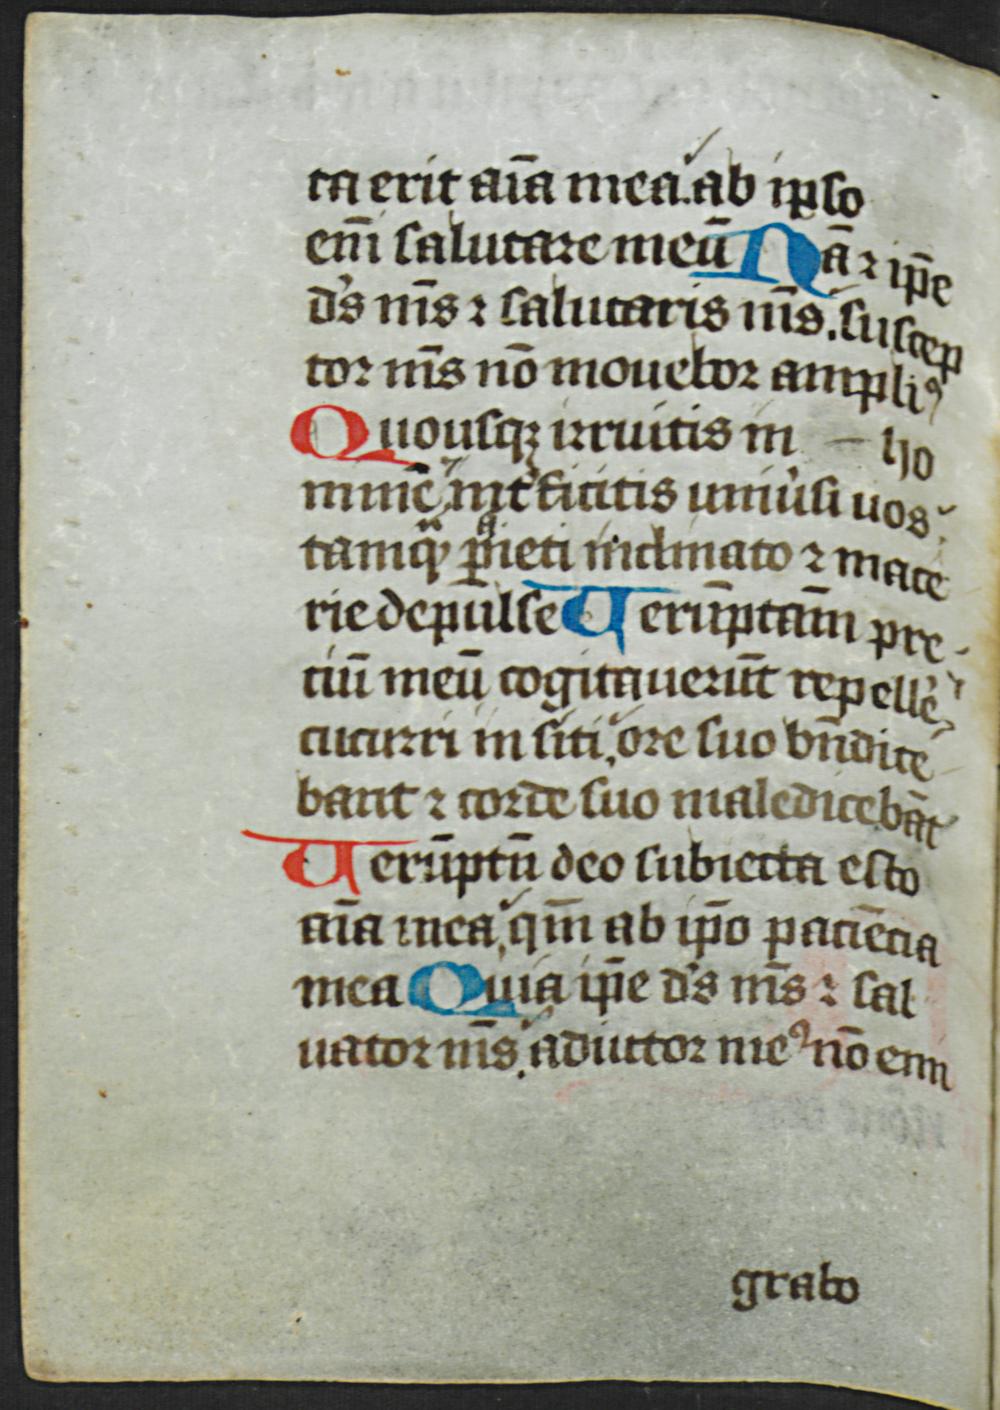 ta erit aīa mea. ab ip̱so
eni̅ salutare meū Nā ⁊ ip̄e
ds̄ ms̄ ⁊ salutaris ms̄. suscep
tor ms̄ nō mouebor ampliꝰ
Quousqꝫ irruitis in ho
minē, int̕ficitis uniu̕si uos
tamqͣ ꝑieti inclinato ⁊ mace
rie depulse Uerūptam̄ pre
ciū meū cogitauerūt repelle̕,
cucurri in siti, ore suo bn̄dice
bant ⁊ corde suo maledicebāt
Uerūptn̄ deo subiecta esto
aīa mea, qm̄ ab ip̄o paciēcia
mea Quia ip̄e ds̄ ms̄ ⁊ sal
uator ms̄, adiutor meꝰ nō emi
grabo